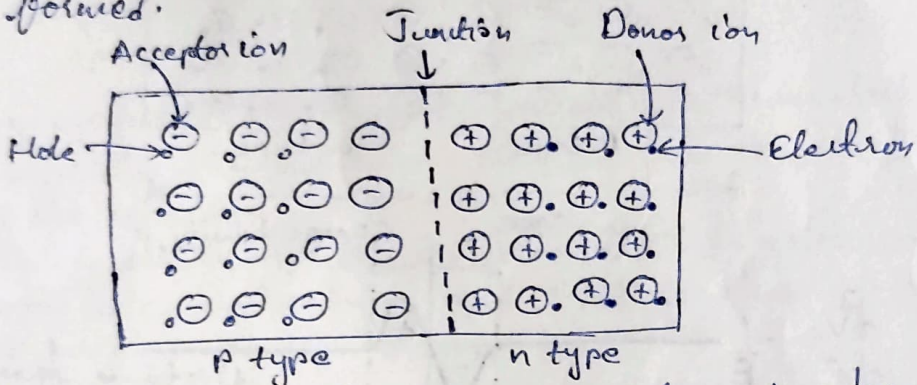 formed.
Acceptor ion Junction Donor ion
Hole Electron
− − − − + + + +
− − − − + + + +
− − − − + + + +
− − − − + + + +
p type n type